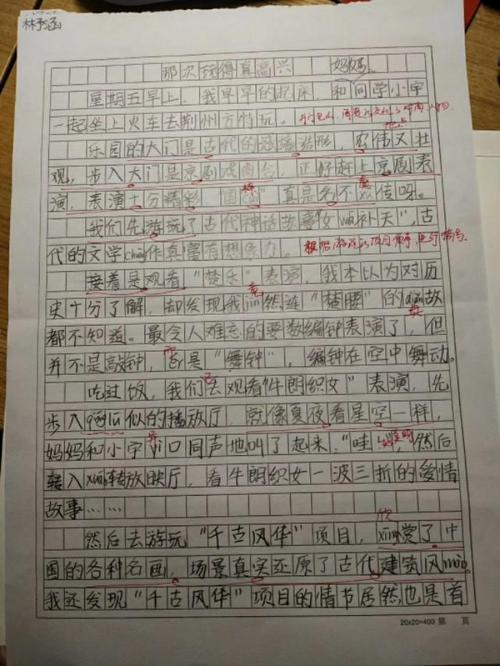 林予涵
那次玩得真高兴
妈妈,
星期五早上,我早早的起床,和同学小宇
一起坐上火车去荆州方特玩。
乐园的大门是古代的 宏伟又壮
观,步入大门是京剧戏 正好赶上京剧表
演,表演十分精彩,"国粹"真是名不虚传呀。
我们先游玩了古代神话故事"女wā补天",古
代的文学chuàng作真富有想象力。
接着是观看"楚乐"表演,我本以为对历
史十分了解,却发现我jìng然连"楚腾"的 故
都不知道。最令人难忘的要数编钟表演了,但
并不是敲钟,而是"舞钟",编钟在空中舞动。
吃过饭,我们去观看"牛朗织女"表演,先
步入 似的播放厅,就像夏夜看星空一样,
妈妈和小宇 口同声地叫了起来,"哇 然后
转入xuán转放映厅,看牛朗织女一波三折的爱情
故事……
然后去游玩"千古风华"项目,xīn赏了中
欣
国的各种名画,场景真实还原了古代建筑风mào,
我还发现"千古风华"项目的情书居然也是首
20×20=400 第 页